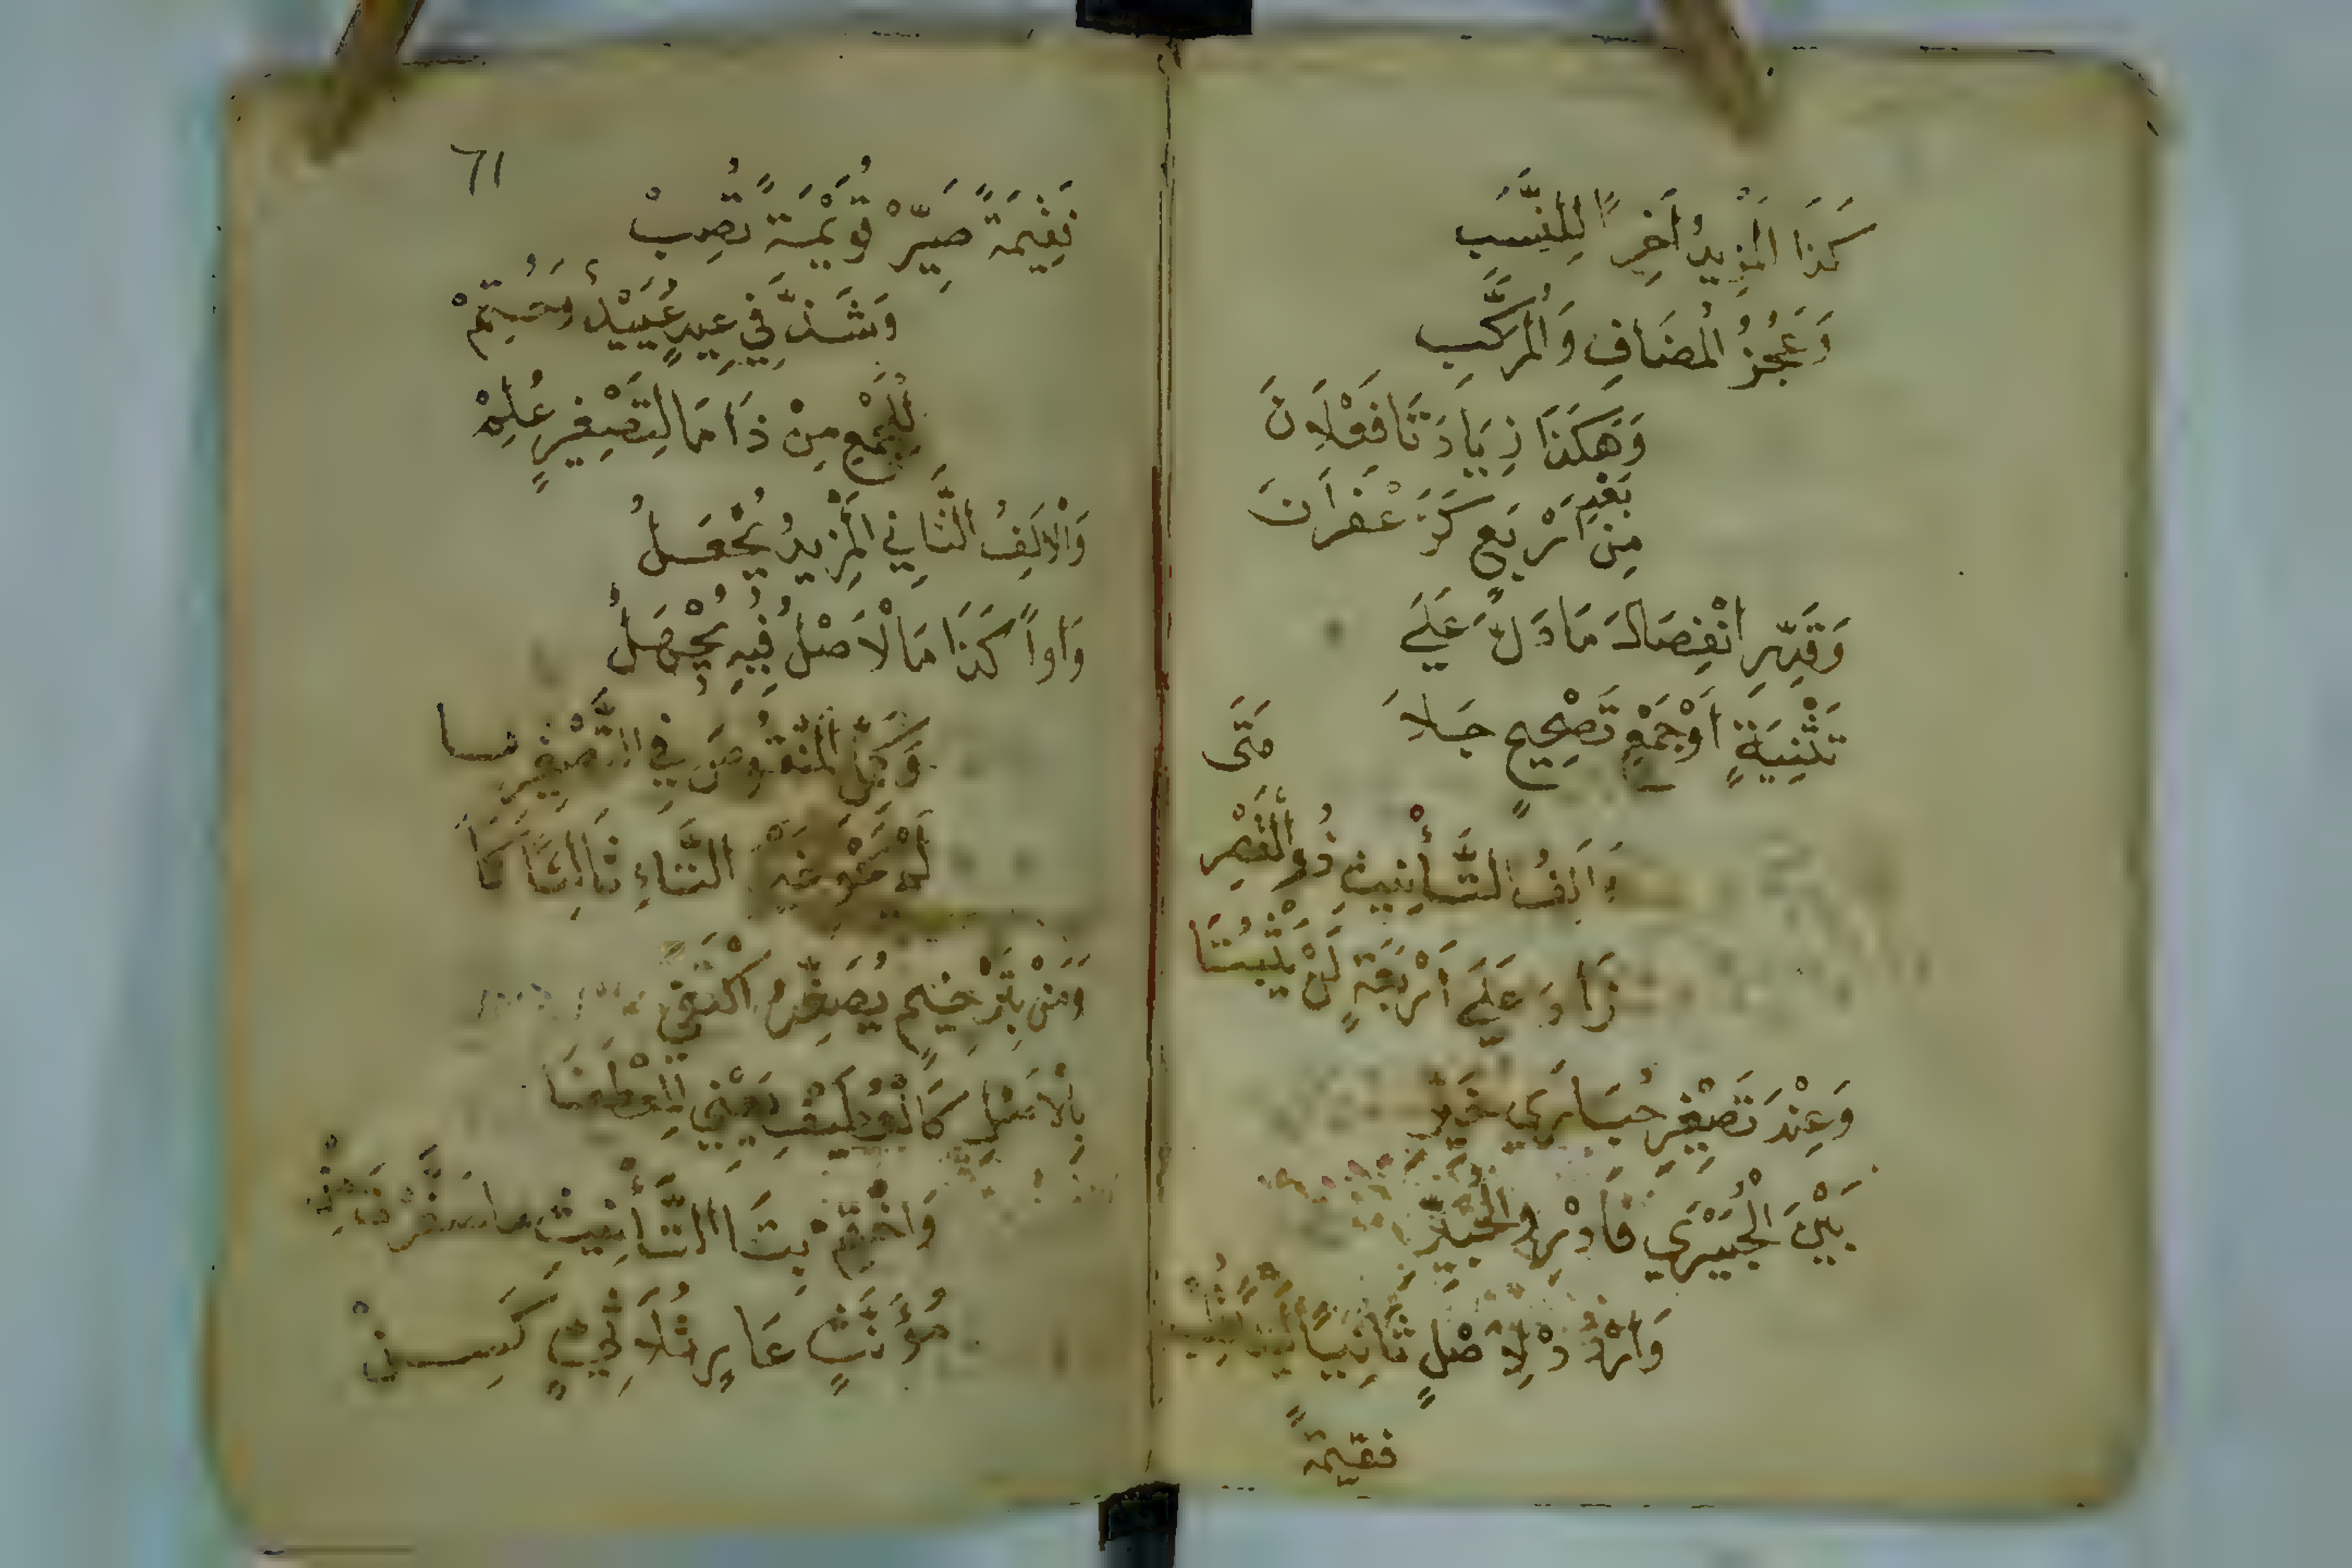 كَذَا الْمَزِيدُ آخِرًا لِلنَّسَبِ
وَعَجُزُ الْمُضَافِ وَالْمُرَكَّبِ
وَهٰكَذَا زِيَادَتَا فَعْلَانَ
مِنْ بَعْدِ أَرْبَعٍ كَزَعْفَرَانَ
وَقَدِّرِ انْفِصَالَ مَا دَلَّ عَلَى
تَثْنِيَةٍ أَوْ جَمْعِ تَصْحِيحٍ جَلَا
وَأَلِفُ التَّأْنِيثِ ذُو الْقَصْرِ مَتَى
زَادَ عَلَى أَرْبَعَةٍ لَنْ يَثْبُتَا
وَعِنْدَ تَصْغِيرِ حُبَارَى خَيِّرِ
بَيْنَ الْحُبَيْرَى فَادْرِ وَالْحُبَيِّرِ
وَارْدُدْ لِأَصْلٍ ثَانِيًا لَيْنًا قُلِبْ
فقيمةً
61
فَقِيمَةً صَيِّرْ قُوَيْمَةً تُصِبْ
وَشَذَّ فِي عِيدٍ عُيَيْدٌ وَحُتِمْ
لِلْجَمْعِ مِنْ ذَا مَا لِتَصْغِيرٍ عُلِمْ
وَالْأَلِفُ الثَّانِي الْمَزِيدُ يُجْعَلُ
وَاوًا كَذَا مَا الْأَصْلُ فِيهِ يُجْهَلُ
وَكَمِّلِ الْمَنْقُوصَ فِي التَّصْغِيرِ مَا
لَمْ يَحْوِ غَيْرَ التَّاءِ ثَالِثًا كَمَا
وَمَنْ بِتَرْخِيمٍ يُصَغِّرُ اكْتَفَى
بِالْأَصْلِ كَالْعُطَيْفِ يَعْنِي الْمِعْطَفَا
وَاخْتِمْ بِتَا التَّأْنِيثِ مَا صَغَّرْتَ مِنْ
مُؤَنَّثٍ عَارٍ ثُلَاثِيٍّ كَسِنْ